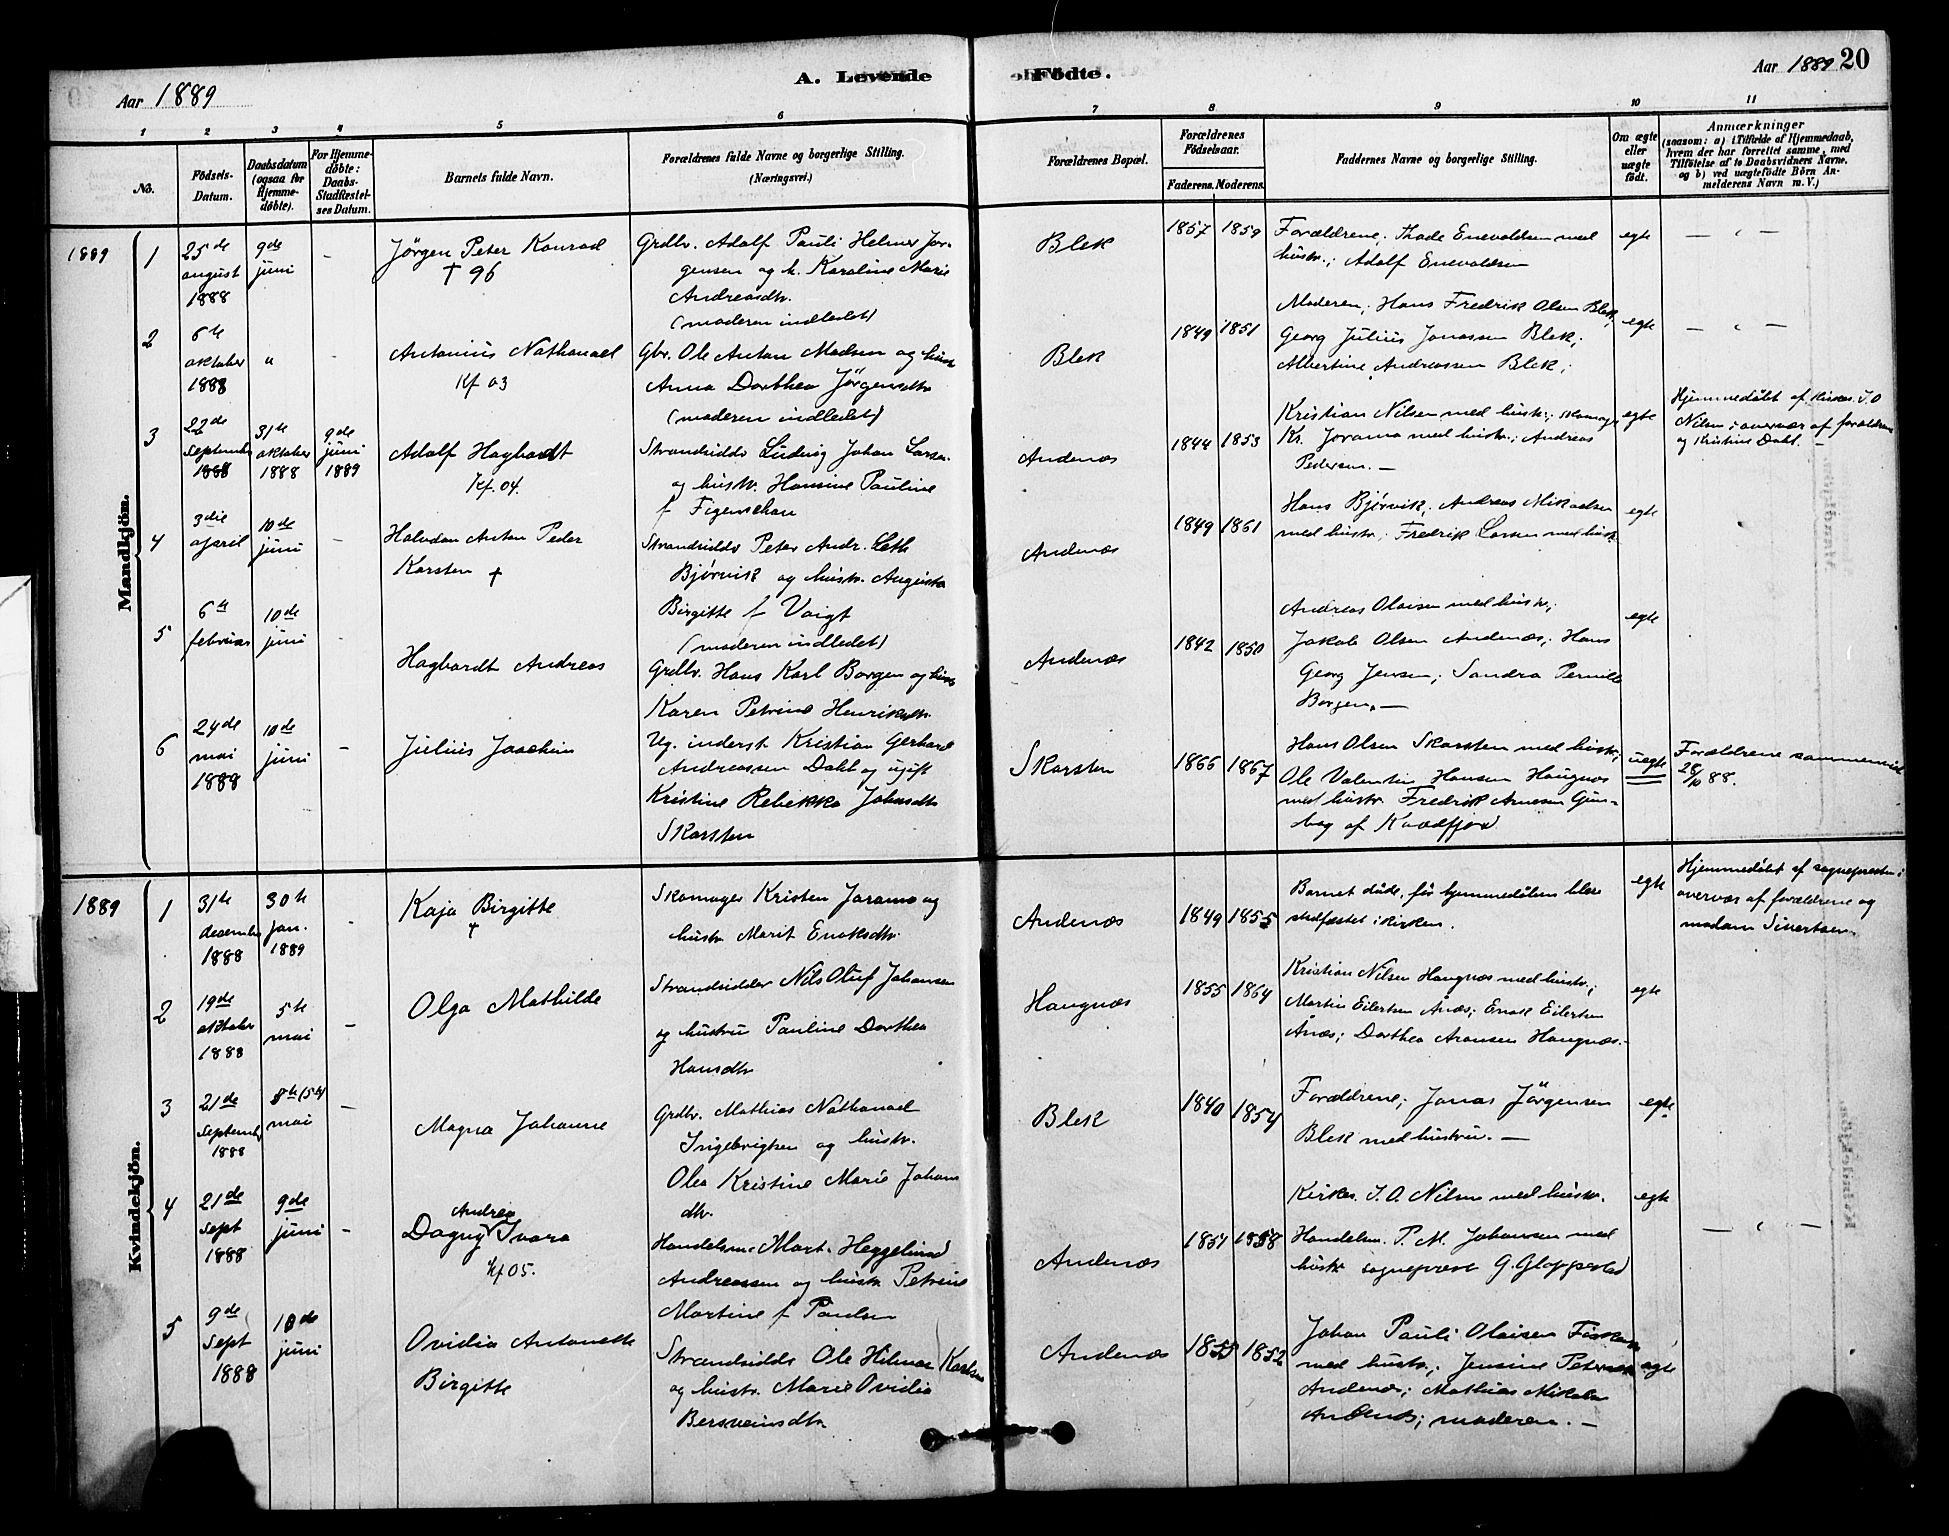 Aar 1889
A. Levende
Födte.
Aar 1889 20
1 2 3 4 5 6 7 8 9 10 11
No.
Födsels-
Datum.
Daabsdatum
(ogsaa for
Hjemme-
döbte).
For Hjemme-
döbte:
Daabs-
Stadfæstel-
ses Datum.
Barnets fulde Navn.
Forældrenes fulde Navne og borgerlige Stilling.
(Næringsvei.)
Forældrenes Bopæl.
Forældrenes
Födselsaar.
Faderens. Moderens.
Faddernes Navne og borgerlige Stilling.
Om ægte
eller
uægte
födt.
Anmærkninger
(saasom: a) i Tilfælde af Hjemmedaab,
hvem der har forrettet samme, med
Tilföielse af to Daabsvidners Navne.
og b) ved uægtefödte Börn An-
melderens Navn m. V.)
Mandkjön.
1889
1
25de
august
1888
9de
juni
-
Jörgen Peter Konrad
† 96
Grdbr. Adolf Pauli Helmer Jör-
gensen og h. Karoline Marie
Andreasdtr.
(moderen indledet)
Blek
1857 1859
Forældrene; Thode Enevoldsen med
hustr.; Adolf Enevoldsen
egte
— " —
2
6te
oktober
1888
"
-
Antonius Nathanael
Kf 03
Gbr. Ole Anton Madsen og hust
Anna Dorthea Jörgensdtr
(moderen indledet)
Blek
1849 1851
Moderen; Hans Fredrik Olsen Blek;
Georg Julius Jonassen Blek;
Albertine Andreassen Blek;
egte
— " —
3
22de
September
1888
31te
oktober
1888
9de
juni
1889
Adolf Hagbardt
Kf. 04.
Strandsidder Ludvig Johan Larsen
og hustr. Hansine Pauline
f Figenschau
Andenæs
1844 1853
Kristian Nilsen med hustr.; skomager
Kr. Jorama med hustr.; Andreas
Pedersen. —
egte
Hjemmedøbt af kirkes. J. O
Nilsen i overvær af forældrene
og Kristine Dahl. —
4
3die
april
10de
juni
-
Halvdan Anton Peder
Karsten †
Strandsidder Peter Andr. Leth
Bjørvik og hustr. Augusta
Birgitte f Voigt
(moderen indledet)
Andenæs
1849 1861
Hans Bjørvik, Andreas Mikalsen
med hustr; Fredrik Larsen med hust.
egte
5
6te
februar
10de
juni
-
Hagbardt Andreas
Grdbr. Hans Karl Borgen og hust
Karen Petrine Henriksdtr.
Andenæs
1842 1850
Andreas Olaisen med hustr.;
Jakob Olsen Andenæs; Hans
Georg Jensen; Sandra Pernille
Borgen. —
egte
6
24de
mai
1889
10de
juni
-
Julius Joachim
Ug. inderst Kristian Gerhard
Andreassen Dahl og ugift
Kristine Rebekka Johansdtr
Skarsten
Skarsten
1866 1867
Hans Olsen Skarsten med hustr;
Ole Valentin Hansen Haugnæs
med hustr. Fredrik Arnesen
af Kvædfjord
uegte
Forældrene sammenvied
28/10 88.
Kvindekjön.
1889
1
31te
december
1888
30te
jan.
1889
-
Kaja Birgitte
†
Skomager Kristen Jorama og
hustr Marit Enoksdtr.
Andenæs
1849 1855
Barnet døde, før hjemmedåben blev
stadfæstet i kirken.
egte
Hjemmedøbt af sognepresten i
overvær af forældrene og
madam Sivertsen.
2
19de
oktober
1888
5te
mai
-
Olga Mathilde
Strandsidder Nils Oluf Johansen
og hustru Pauline Dorthea
Hansdtr
Haugnæs
1855 1864
Kristian Nilsen Haugnæs med hustr.;
Martin Eilertsen Ånæs; Enok Eilertsen
Ånæs; Dorthea Aronsen Haugnæs. -
egte
3
21de
September
1888
8de (5te)
mai
-
Magna Johanne
Grdbr. Mathias Nathanael
Ingebrigtsen og hustr.
Olea Kristine Marie Johans
dtr.
Blek
1840 1854
Forældrene; Jonas Jörgensen
Blek med hustru. —
egte
4
21de
Sept
1888
9de
juni
-
Andrea
Dagny Svara
Kf 05.
Handelsm. Mart. Heggelund
Andreassen og hustr Petrine
Martine f Paulsen
Andenæs
1854 1858
Kirkes. J. O. Nilsen med hustr.
Handelsm. P. M. Johansen med
hustr sogneprest G. Gloppestad
egte
— " —
5
9de
Sept
1888
10de
juni
Ovidia Antonette
Birgitte
Strandsidder Ole Hilmar Karlsen
og hustr. Marie Ovidia
Bersveinsdtr
Andenæs
1855 1852
Johan Pauli Olaisen
med hustr.; Jensine Petersen
Andenæs; Mathias Mikalsen
Andenæs; moderen. —
egte